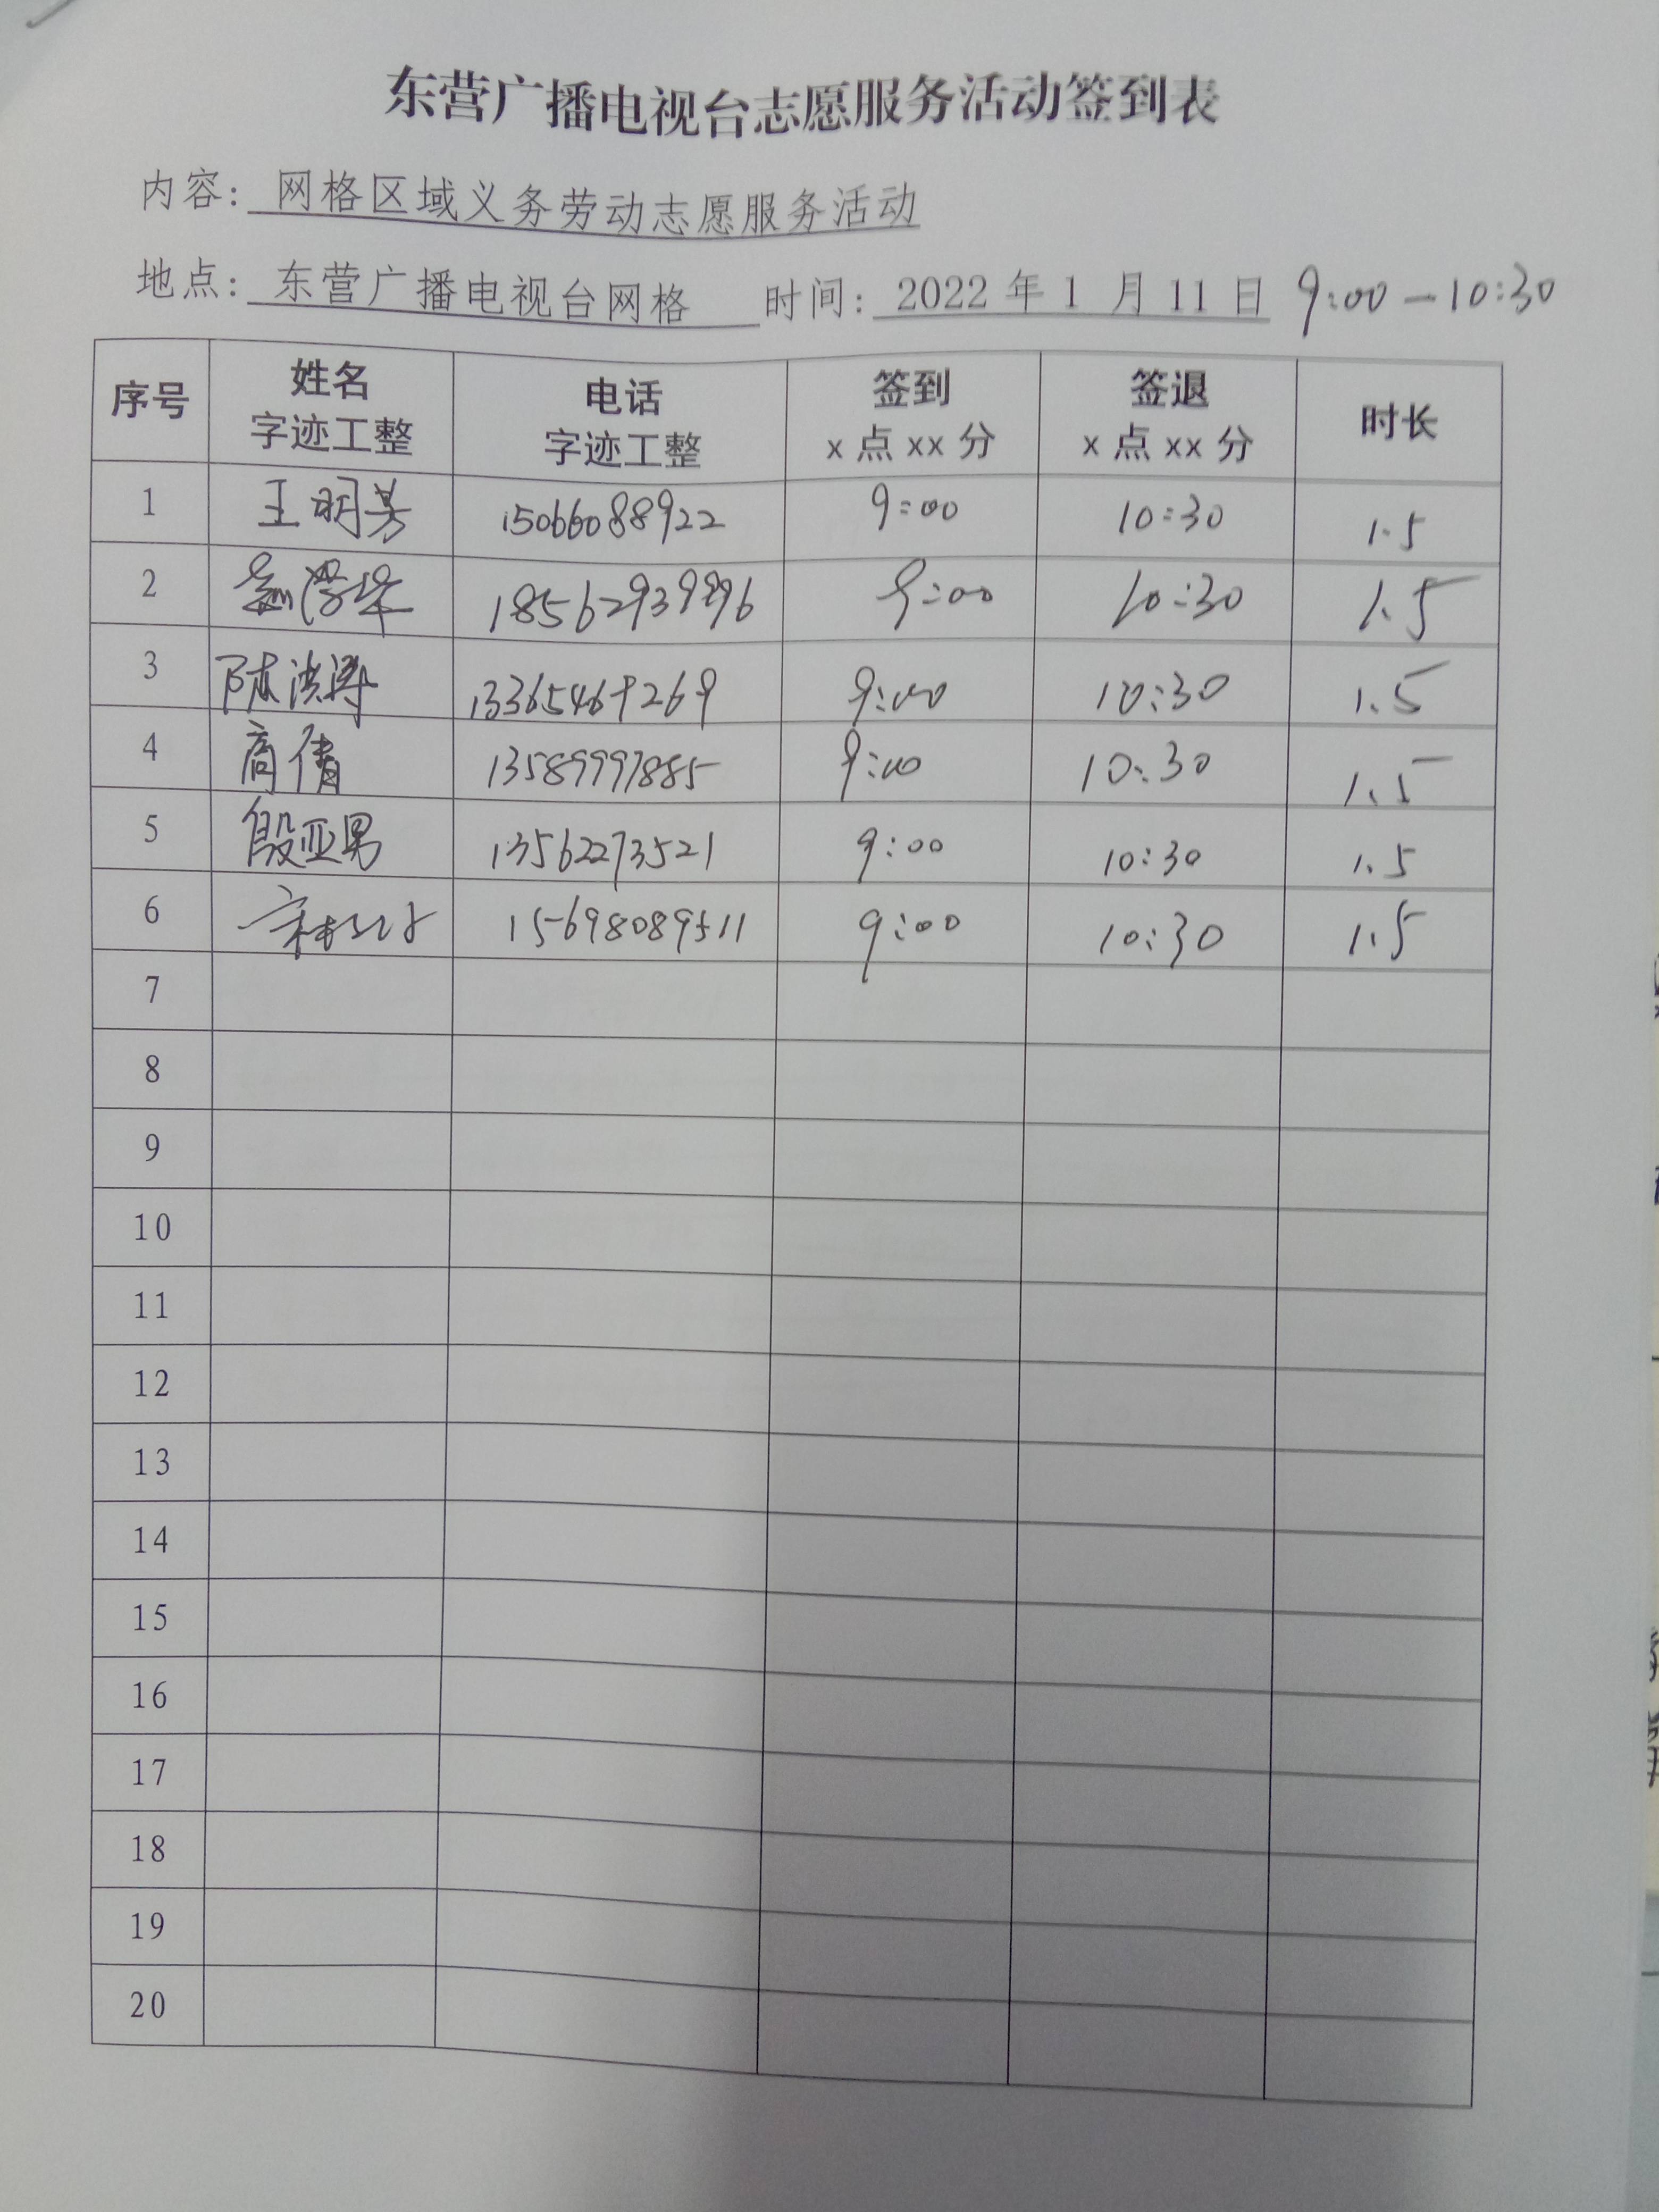 东营广播电视台志愿服务活动签到表
内容: 网格区域义务劳动志愿服务活动
地点: 东营广播电视台网格 时间: 2022 年 1 月 11 日 9:00-10:30
序号 姓名 字迹工整 电话 字迹工整 签到 x 点 xx 分 签退 x 点 xx 分 时长
1 王明芳 15066088922 9:00 10:30 1.5
2 9:00 10:30 1.5
3 陈洪涛 13365469269 9:00 10:30 1.5
4 商倩 13589997885 9:00 10:30 1.5
5 殷亚男 13562273521 9:00 10:30 1.5
6 15698089511 9:00 10:30 1.5
7
8
9
10
11
12
13
14
15
16
17
18
19
20